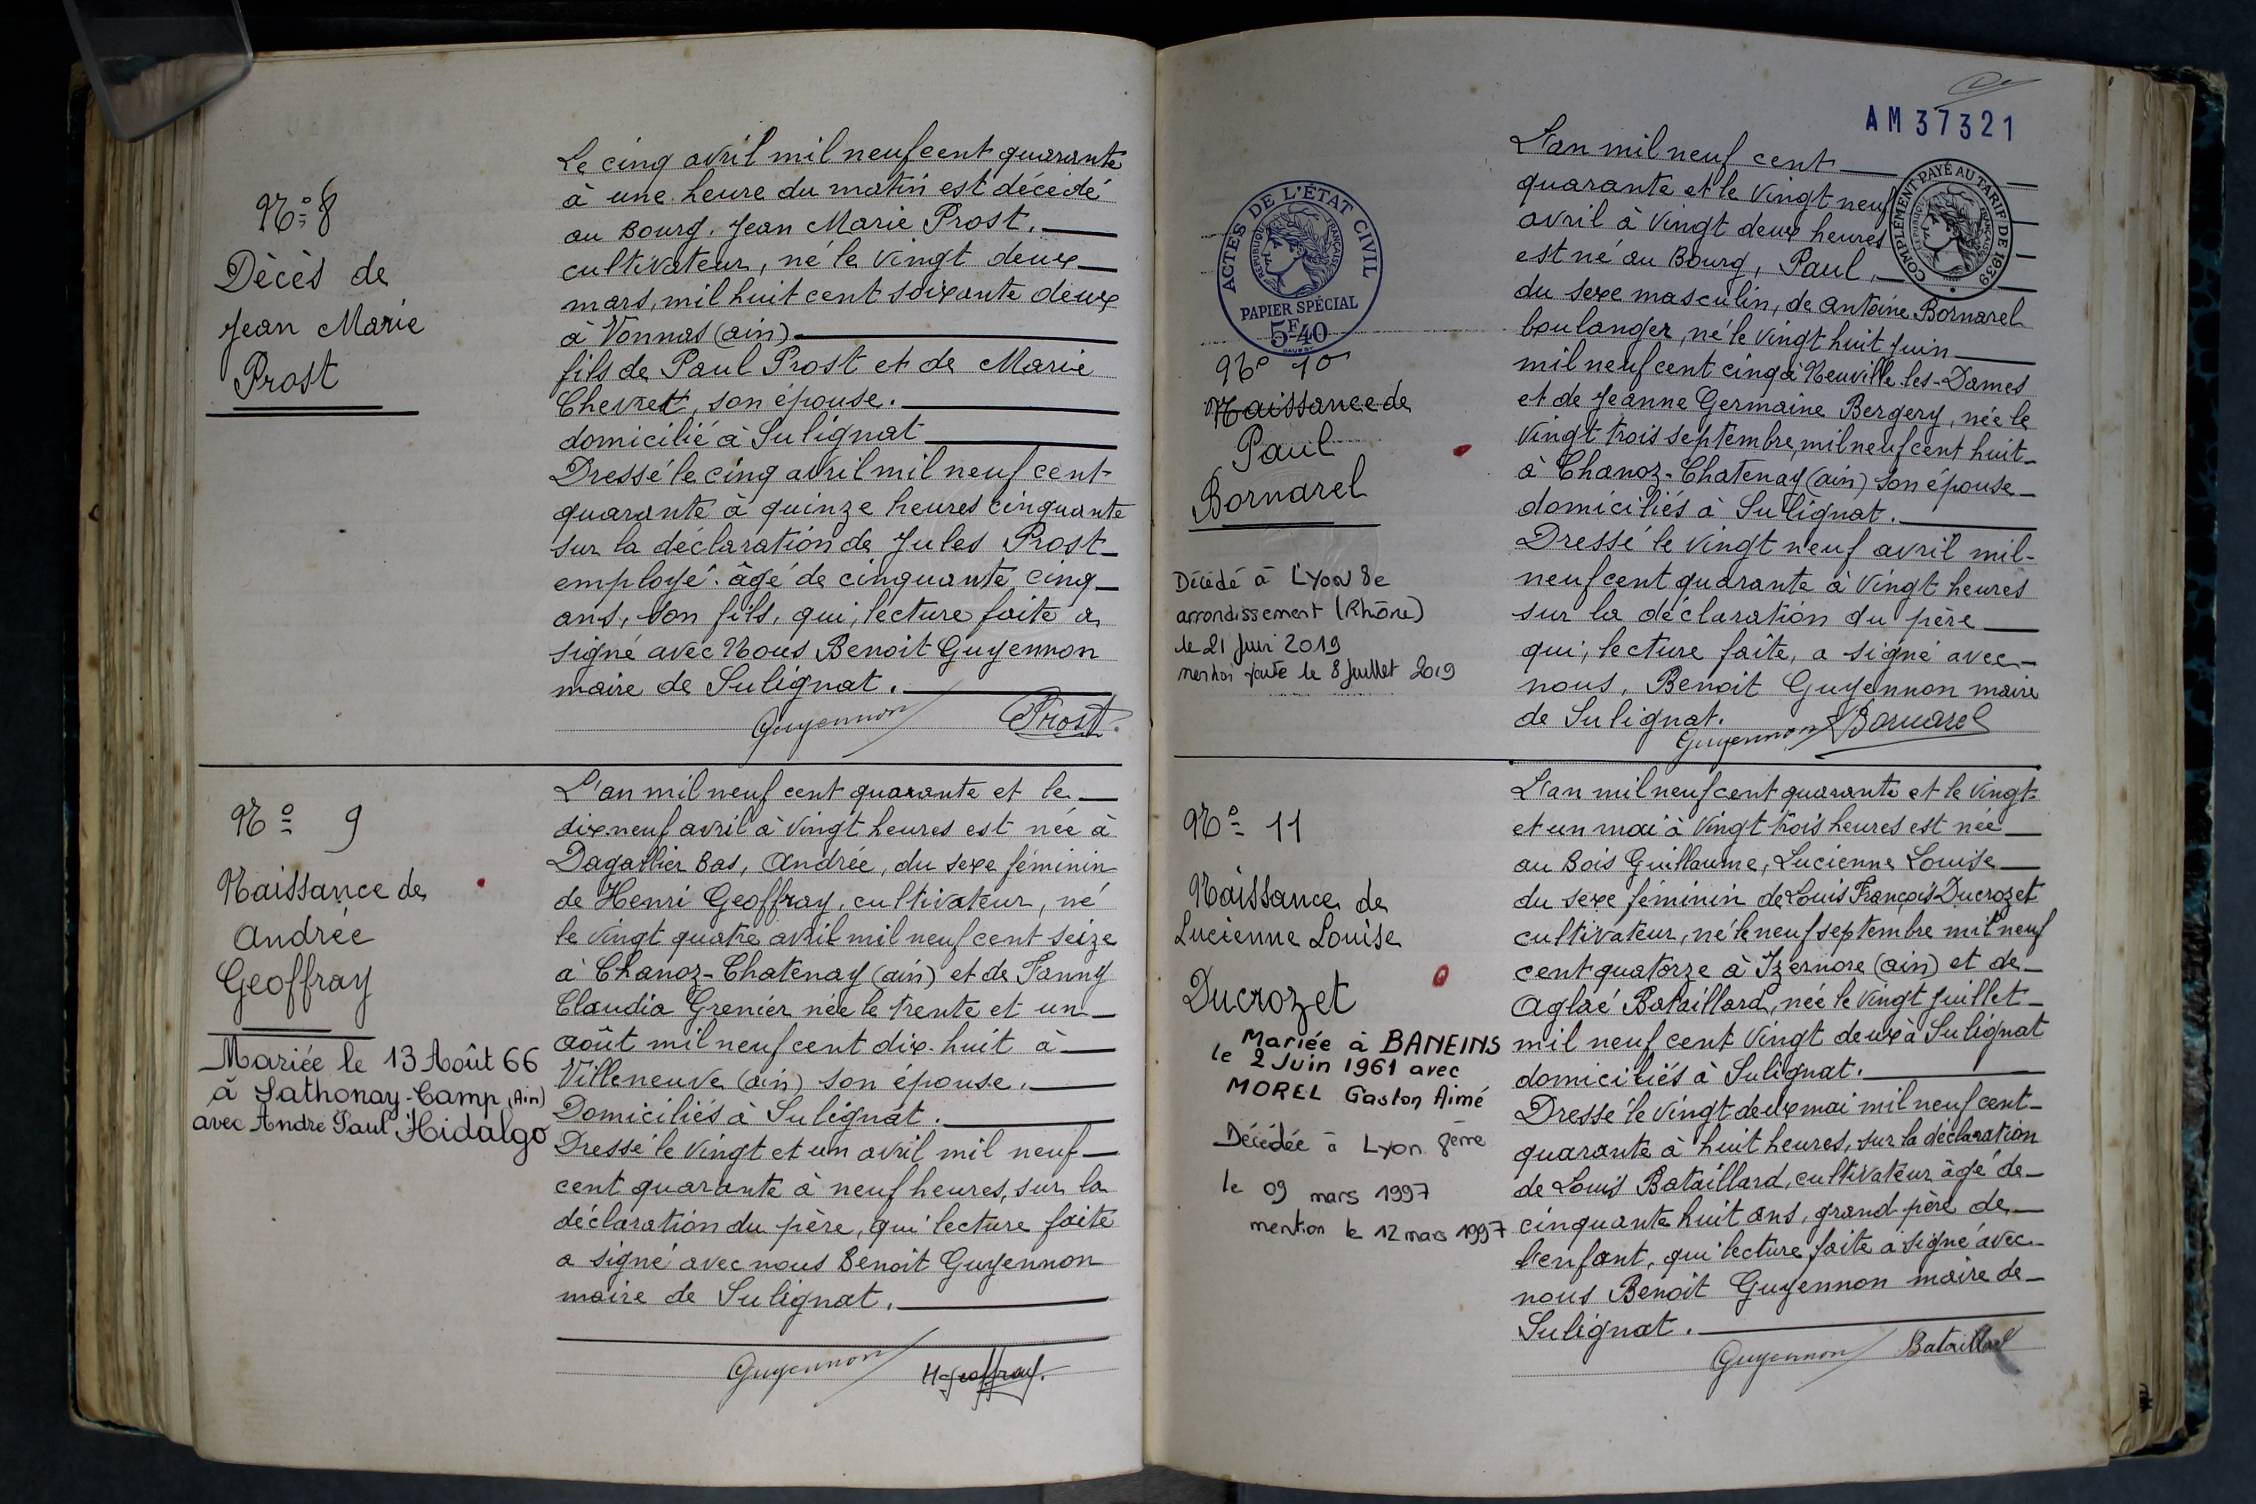 Nº 8
Décès de
Jean Marie
Prost
Le cinq avril mil neuf cent quarante
à une heure du matin est décédé
au Bourg, Jean Marie Prost,
cultivateur, né le vingt deux
mars, mil huit cent soixante deux
à Vonnas (ain)
fils de Paul Prost et de Marie
Chevret, son épouse.
domicilié à Sulignat
Dressé le cinq avril mil neuf cent
quarante à quinze heures cinquante
sur la déclaration de Jules Prost
employé. âgé de cinquante cinq
ans, son fils, qui, lecture faite a
signé avec Nous Benoit Guyennon
maire de Sulignat.
Guyennon Prost
Nº 9
Naissance de
Andrée
Geoffray
Mariée le 13 Août 66
à Sathonay-Camp (Ain)
avec André Paul Hidalgo
L'an mil neuf cent quarante et le
dix-neuf avril à vingt heures est née à
Dagallier Bas, Andrée, du sexe féminin
de Henri Geoffray, cultivateur, né
le vingt quatre avril mil neuf cent seize
à Chanoz-Chatenay (ain) et de Fanny
Claudia Grenier née le trente et un
août mil neuf cent dix-huit à
Villeneuve (ain) son épouse.
Domiciliés à Sulignat.
Dressé le vingt et un avril mil neuf
cent quarante à neuf heures, sur la
déclaration du père, qui lecture faite
a signé avec nous Benoit Guyennon
maire de Sulignat.
Guyennon H Geoffray
AM 37321
ACTES DE L'ÉTAT CIVIL
RÉPUBLIQUE FRANÇAISE
PAPIER SPÉCIAL
5F40
COMPLÉMENT PAYÉ AU TARIF DE 1939
RÉPUBLIQUE FRANÇAISE
Nº 10
Naissance de
Paul
Bornarel
Décédé à Lyon 8e
arrondissement (Rhône)
le 21 Juin 2019
mention faite le 8 Juillet 2019
L'an mil neuf cent
quarante et le vingt neuf
avril à vingt deux heures
est né au Bourg, Paul,
du sexe masculin, de Antoine Bornarel
boulanger, né le vingt huit juin
mil neuf cent cinq à Neuville-les-Dames
et de Jeanne Germaine Bergery, née le
vingt trois septembre mil neuf cent huit
à Chanoz-Chatenay (ain) son épouse
domiciliés à Sulignat.
Dressé le vingt neuf avril mil-
neuf cent quarante à vingt heures
sur la déclaration du père
qui, lecture faîte, a signé avec
nous, Benoit Guyennon maire
de Sulignat.
Guyennon Bornarel
Nº 11
Naissance de
Lucienne Louise
Ducrozet
Mariée à BANEINS
le 2 Juin 1961 avec
MOREL Gaston Aimé
Décédée à Lyon 8ème
le 09 mars 1997
mention le 12 mars 1997
L'an mil neuf cent quarante et le vingt
et un mai à vingt trois heures est née
au Bois Guillaume, Lucienne Louise
du sexe féminin de Louis François Ducrozet
cultivateur, né le neuf septembre mil neuf
cent quatorze à Izernore (ain) et de
Aglaé Bataillard, née le vingt juillet
mil neuf cent vingt deux à Sulignat
domiciliés à Sulignat.
Dressé le vingt deux mai mil neuf cent
quarante à huit heures, sur la déclaration
de Louis Bataillard, cultivateur âgé de
cinquante huit ans, grand-père de
l'enfant, qui lecture faite a signé avec
nous Benoit Guyennon maire de
Sulignat.
Guyennon Bataillard